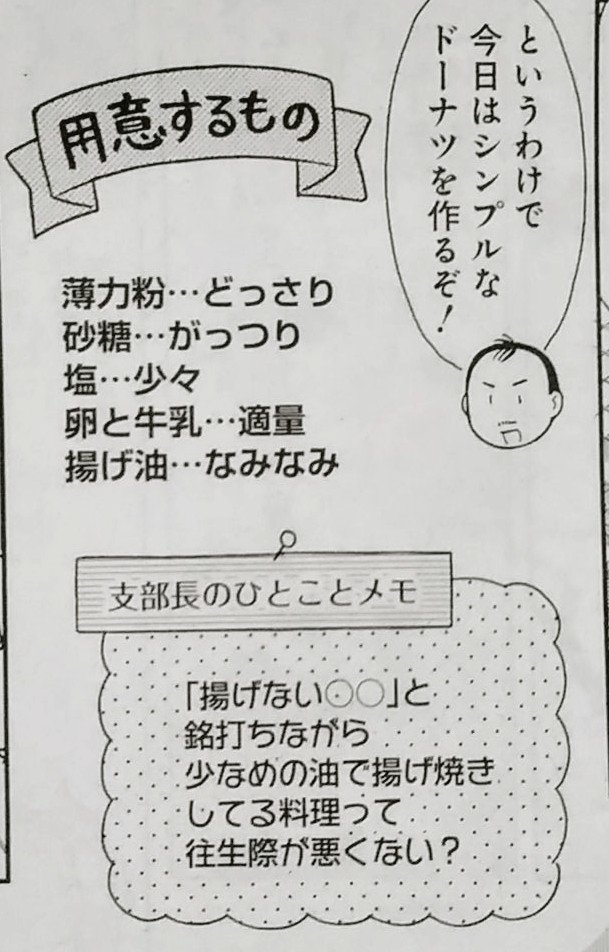 というわけで
今日はシンプルな
ドーナツを作るぞ！
用意するもの
薄力粉…どっさり
砂糖…がっつり
塩…少々
卵と牛乳…適量
揚げ油…なみなみ
支部長のひとことメモ
「揚げない○○」と
銘打ちながら
少なめの油で揚げ焼き
してる料理って
往生際が悪くない？